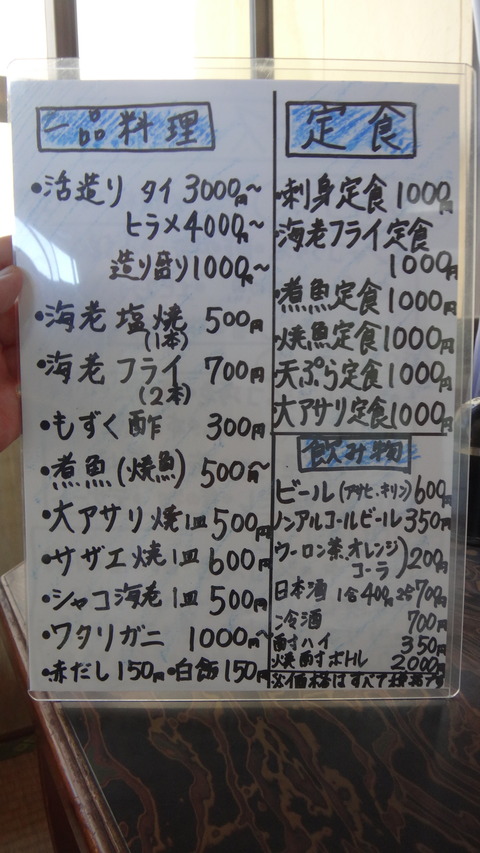 一品料理
・活造り タイ 3000円~
ヒラメ 4000円~
造り盛り 1000円~
・海老 塩焼 500円
(1本)
・海老 フライ 700円
(2本)
・もずく酢 300円
・煮魚(焼魚) 500円~
・大アサリ焼1皿 500円
・サザエ焼1皿 600円
・シャコ海老1皿 500円
・ワタリガニ 1000円~
・赤だし150円・白飯150円
定食
・刺身定食1000円
・海老フライ定食
1000円
・煮魚定食1000円
・焼魚定食1000円
・天ぷら定食1000円
大アサリ定食1000円
飲み物
ビール(アサヒ、キリン)600円
ノンアルコールビール350円
ウーロン茶、オレンジ
コーラ)200円
日本酒 1合400円 2合700円
冷酒 700円
酎ハイ 350円
焼酎ボトル 2000円
※価格はすべて税込です